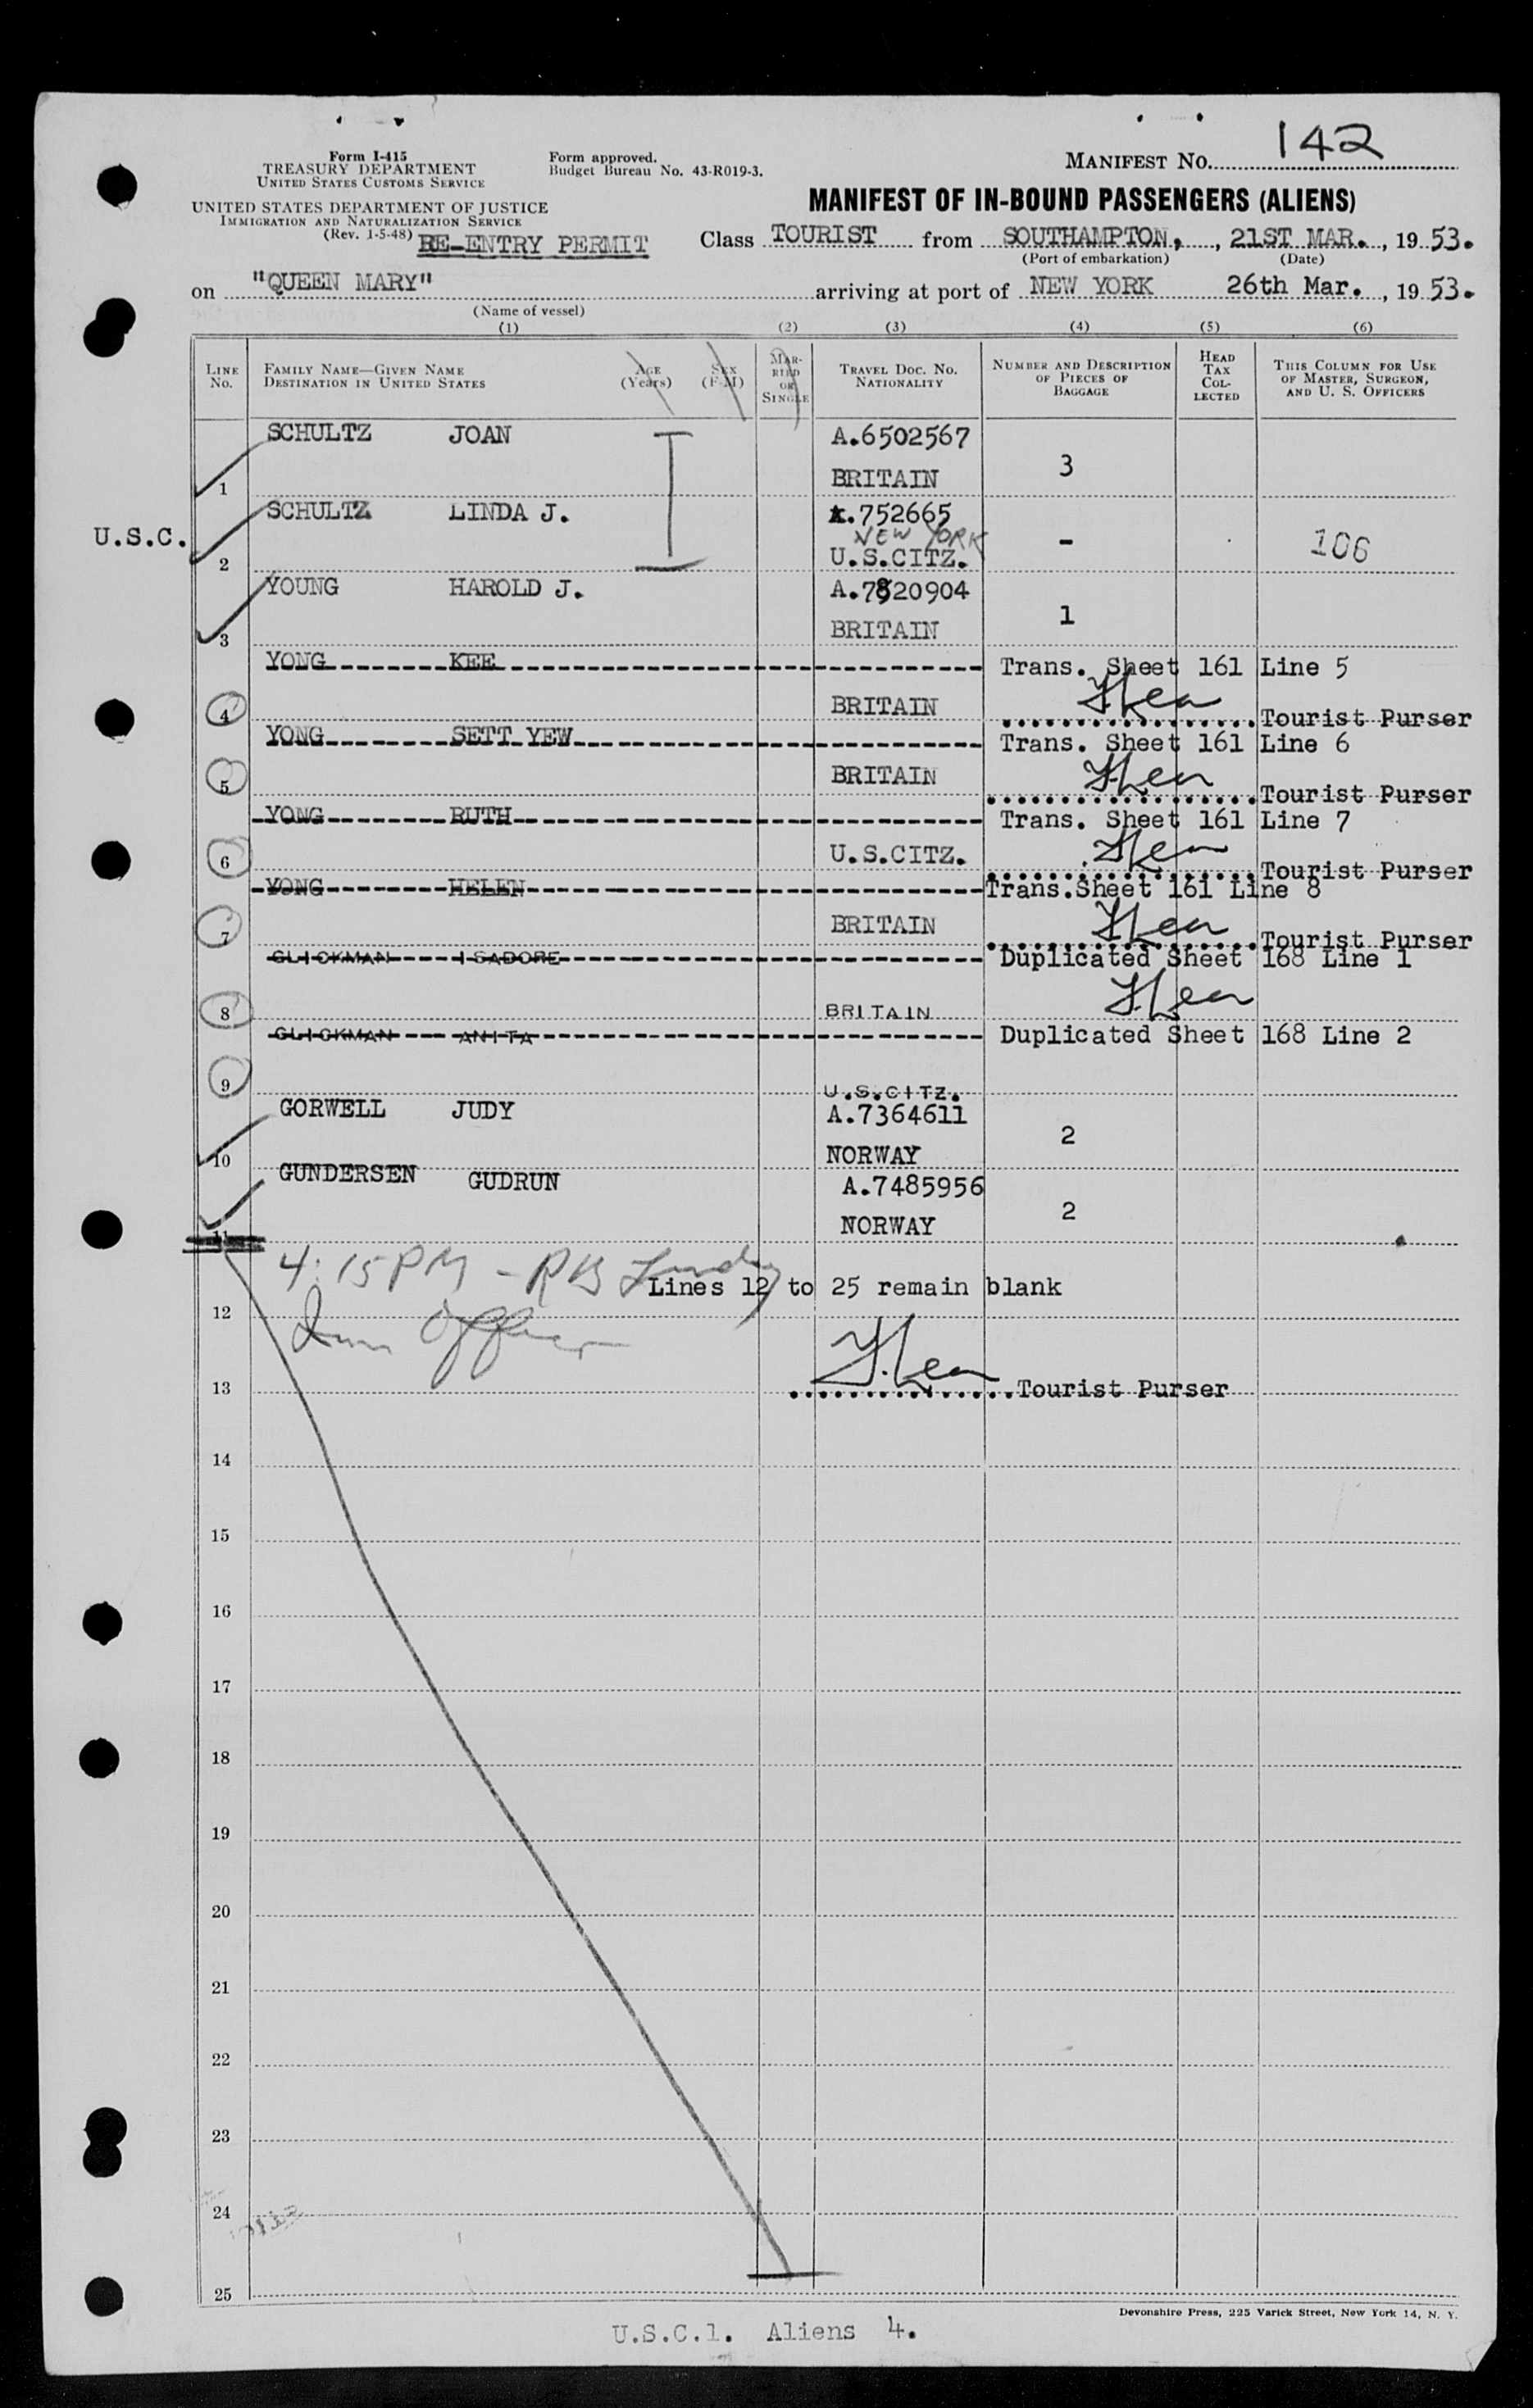 142
Form I-415
TREASURY DEPARTMENT
UNITED STATES CUSTOMS SERVICE
Form approved.
Budget Bureau No. 43-R019-3.
MANIFEST NO.
UNITED STATES DEPARTMENT OF JUSTICE
IMMIGRATION AND NATURALIZATION SERVICE
(Rev. 1-5-48) RE-ENTRY PERMIT
MANIFEST OF IN-BOUND PASSENGERS (ALIENS)
Class TOURIST from SOUTHAMPTON, , 21ST MAR. , 19 53.
(Port of embarkation) (Date)
on "QUEEN MARY" arriving at port of NEW YORK 26th Mar. , 19 53.
(Name of vessel)
(1) (2) (3) (4) (5) (6)
LINE NO. FAMILY NAME—GIVEN NAME DESTINATION IN UNITED STATES AGE (Years) SEX (F-M) MARRIED OR SINGLE TRAVEL DOC. NO. NATIONALITY NUMBER AND DESCRIPTION OF PIECES OF BAGGAGE HEAD TAX COLLECTED THIS COLUMN FOR USE OF MASTER, SURGEON, AND U. S. OFFICERS
SCHULTZ JOAN A.6502567
1 BRITAIN 3
SCHULTZ LINDA J. .752665
NEW YORK
U.S.C. 2 U.S.CITZ. - 106
YOUNG HAROLD J. A.7820904
3 BRITAIN 1
YONG KEE Trans. Sheet 161 Line 5
4 BRITAIN Tourist Purser
YONG SETT YEW Trans. Sheet 161 Line 6
5 BRITAIN Tourist Purser
YONG RUTH Trans. Sheet 161 Line 7
6 U.S.CITZ. Tourist Purser
YONG HELEN Trans.Sheet 161 Line 8
7 BRITAIN Tourist Purser
GLICKMAN ISADORE Duplicated Sheet 168 Line 1
8 BRITAIN
GLICKMAN ANITA Duplicated Sheet 168 Line 2
9 U.S.CITZ.
GORWELL JUDY A.7364611
10 NORWAY 2
GUNDERSEN GUDRUN A.7485956
11 NORWAY 2
4:15 PM - RB
Lines 12 to 25 remain blank
12 Imm Officer
13 Tourist Purser
14
15
16
17
18
19
20
21
22
23
24
25
Devonshire Press, 225 Varick Street, New York 14, N. Y.
U.S.C.1. Aliens 4.